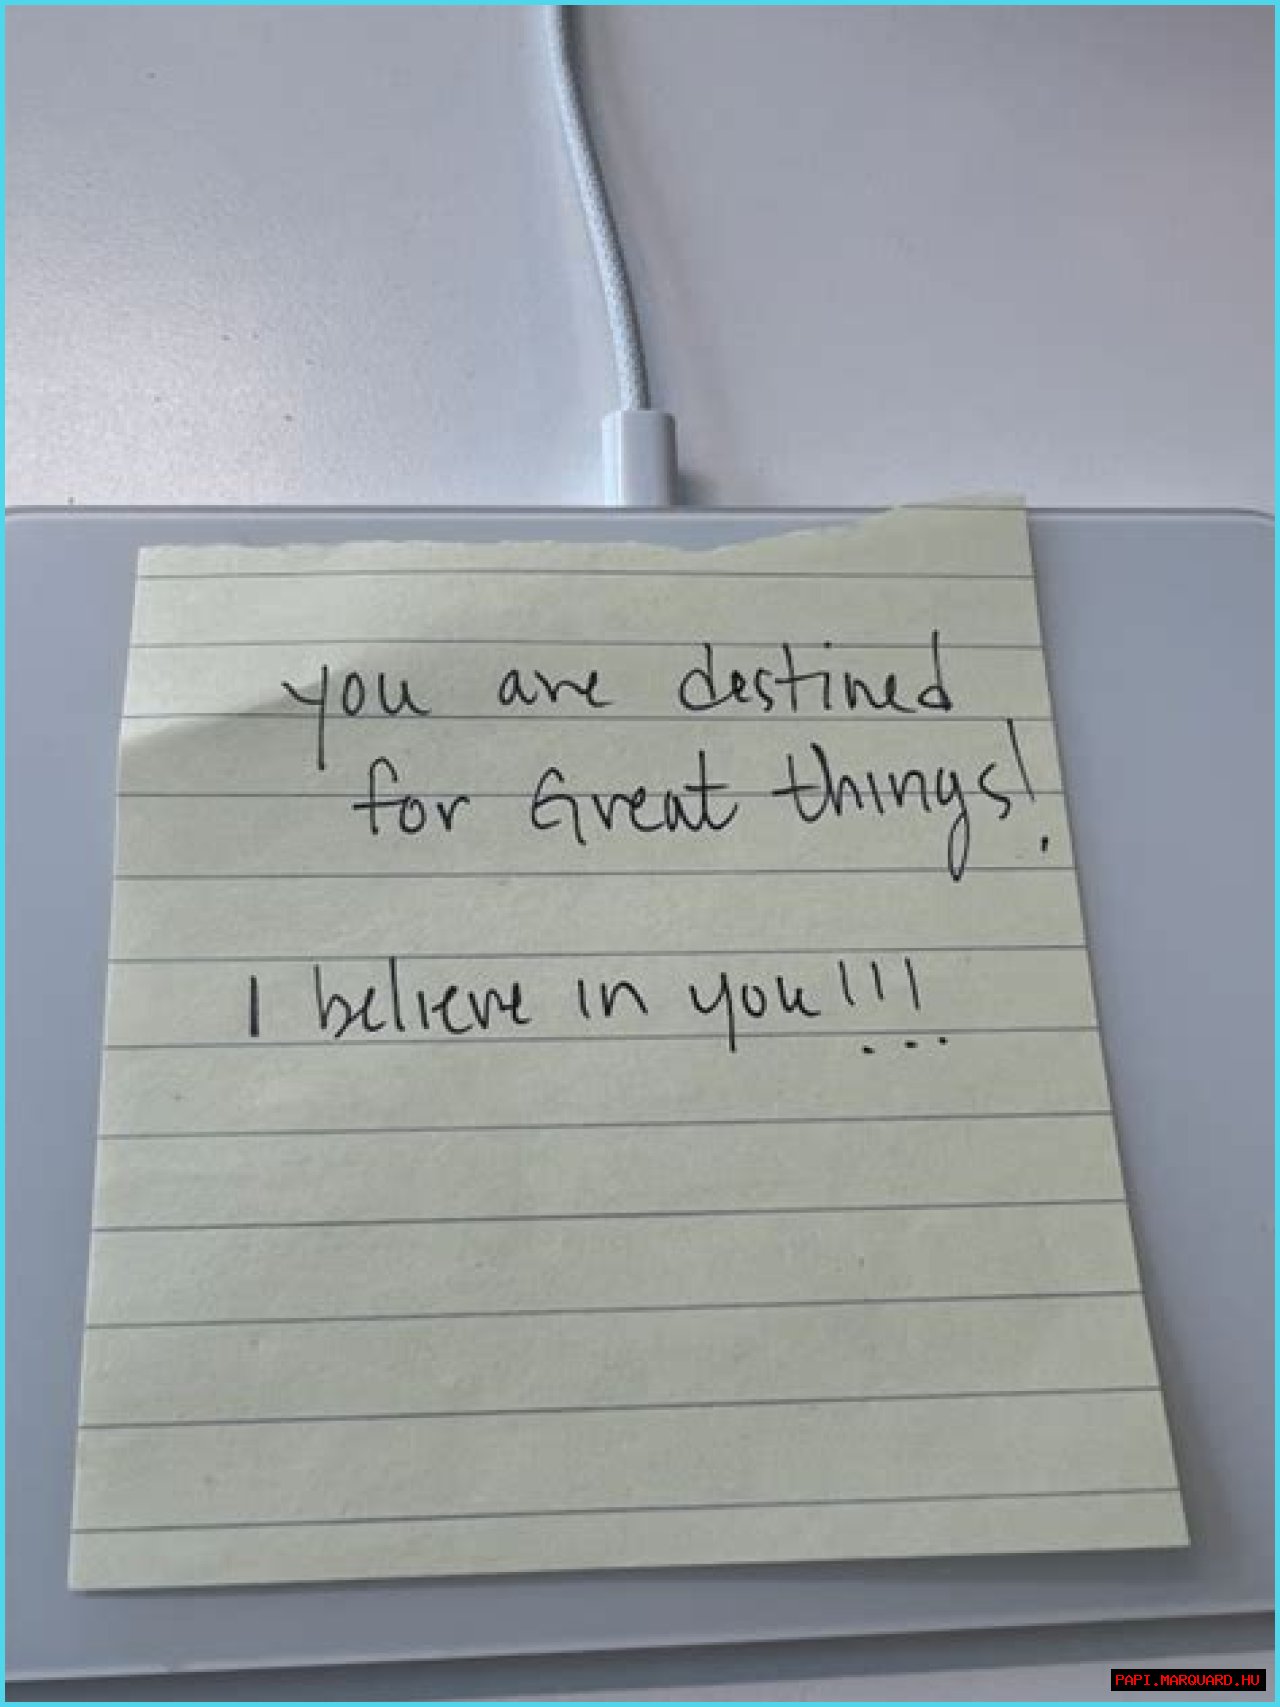 you are destined
for Great things!
I believe in you!!!
PAPI.MARQUARD.HU